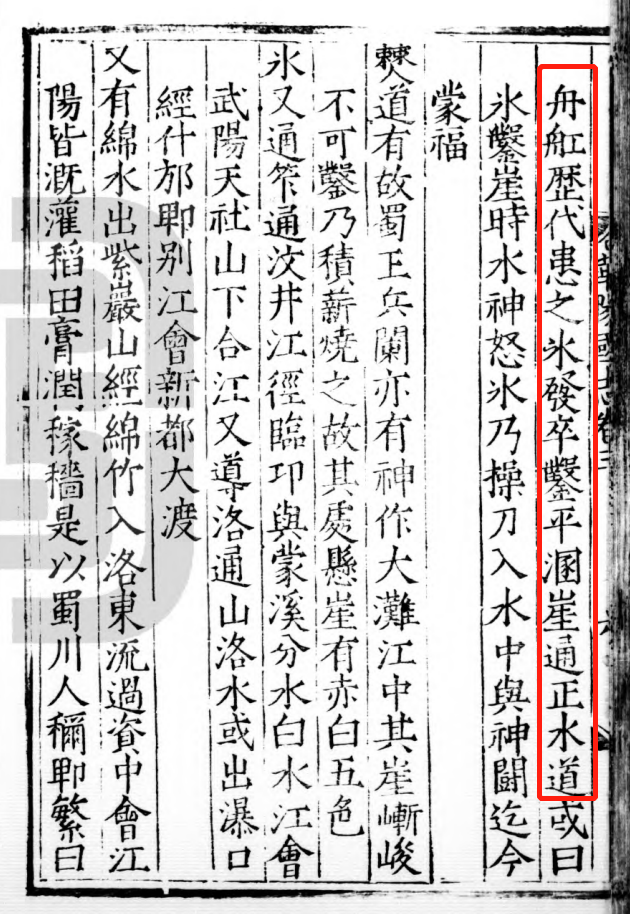 舟舡歴代患之氷發卒鑿平溷崖通正水道或曰
氷鑿崖時水神怒氷乃操刀入水中與神鬪迄今
蒙福
僰道有故蜀王兵闌亦有神作大灘江中其崖嶃峻
不可鑿乃積薪燒之故其處懸崖有赤白五色
氷又通笮通汶井江徑臨邛與蒙溪分水白水江會
武陽天社山下合江又導洛通山洛水或出瀑口
經什邡郫别江會新都大渡
又有綿水出紫巖山經綿竹入洛東流過資中會江
陽皆溉灌稻田膏潤稼穡是以蜀川人稱郫繁曰